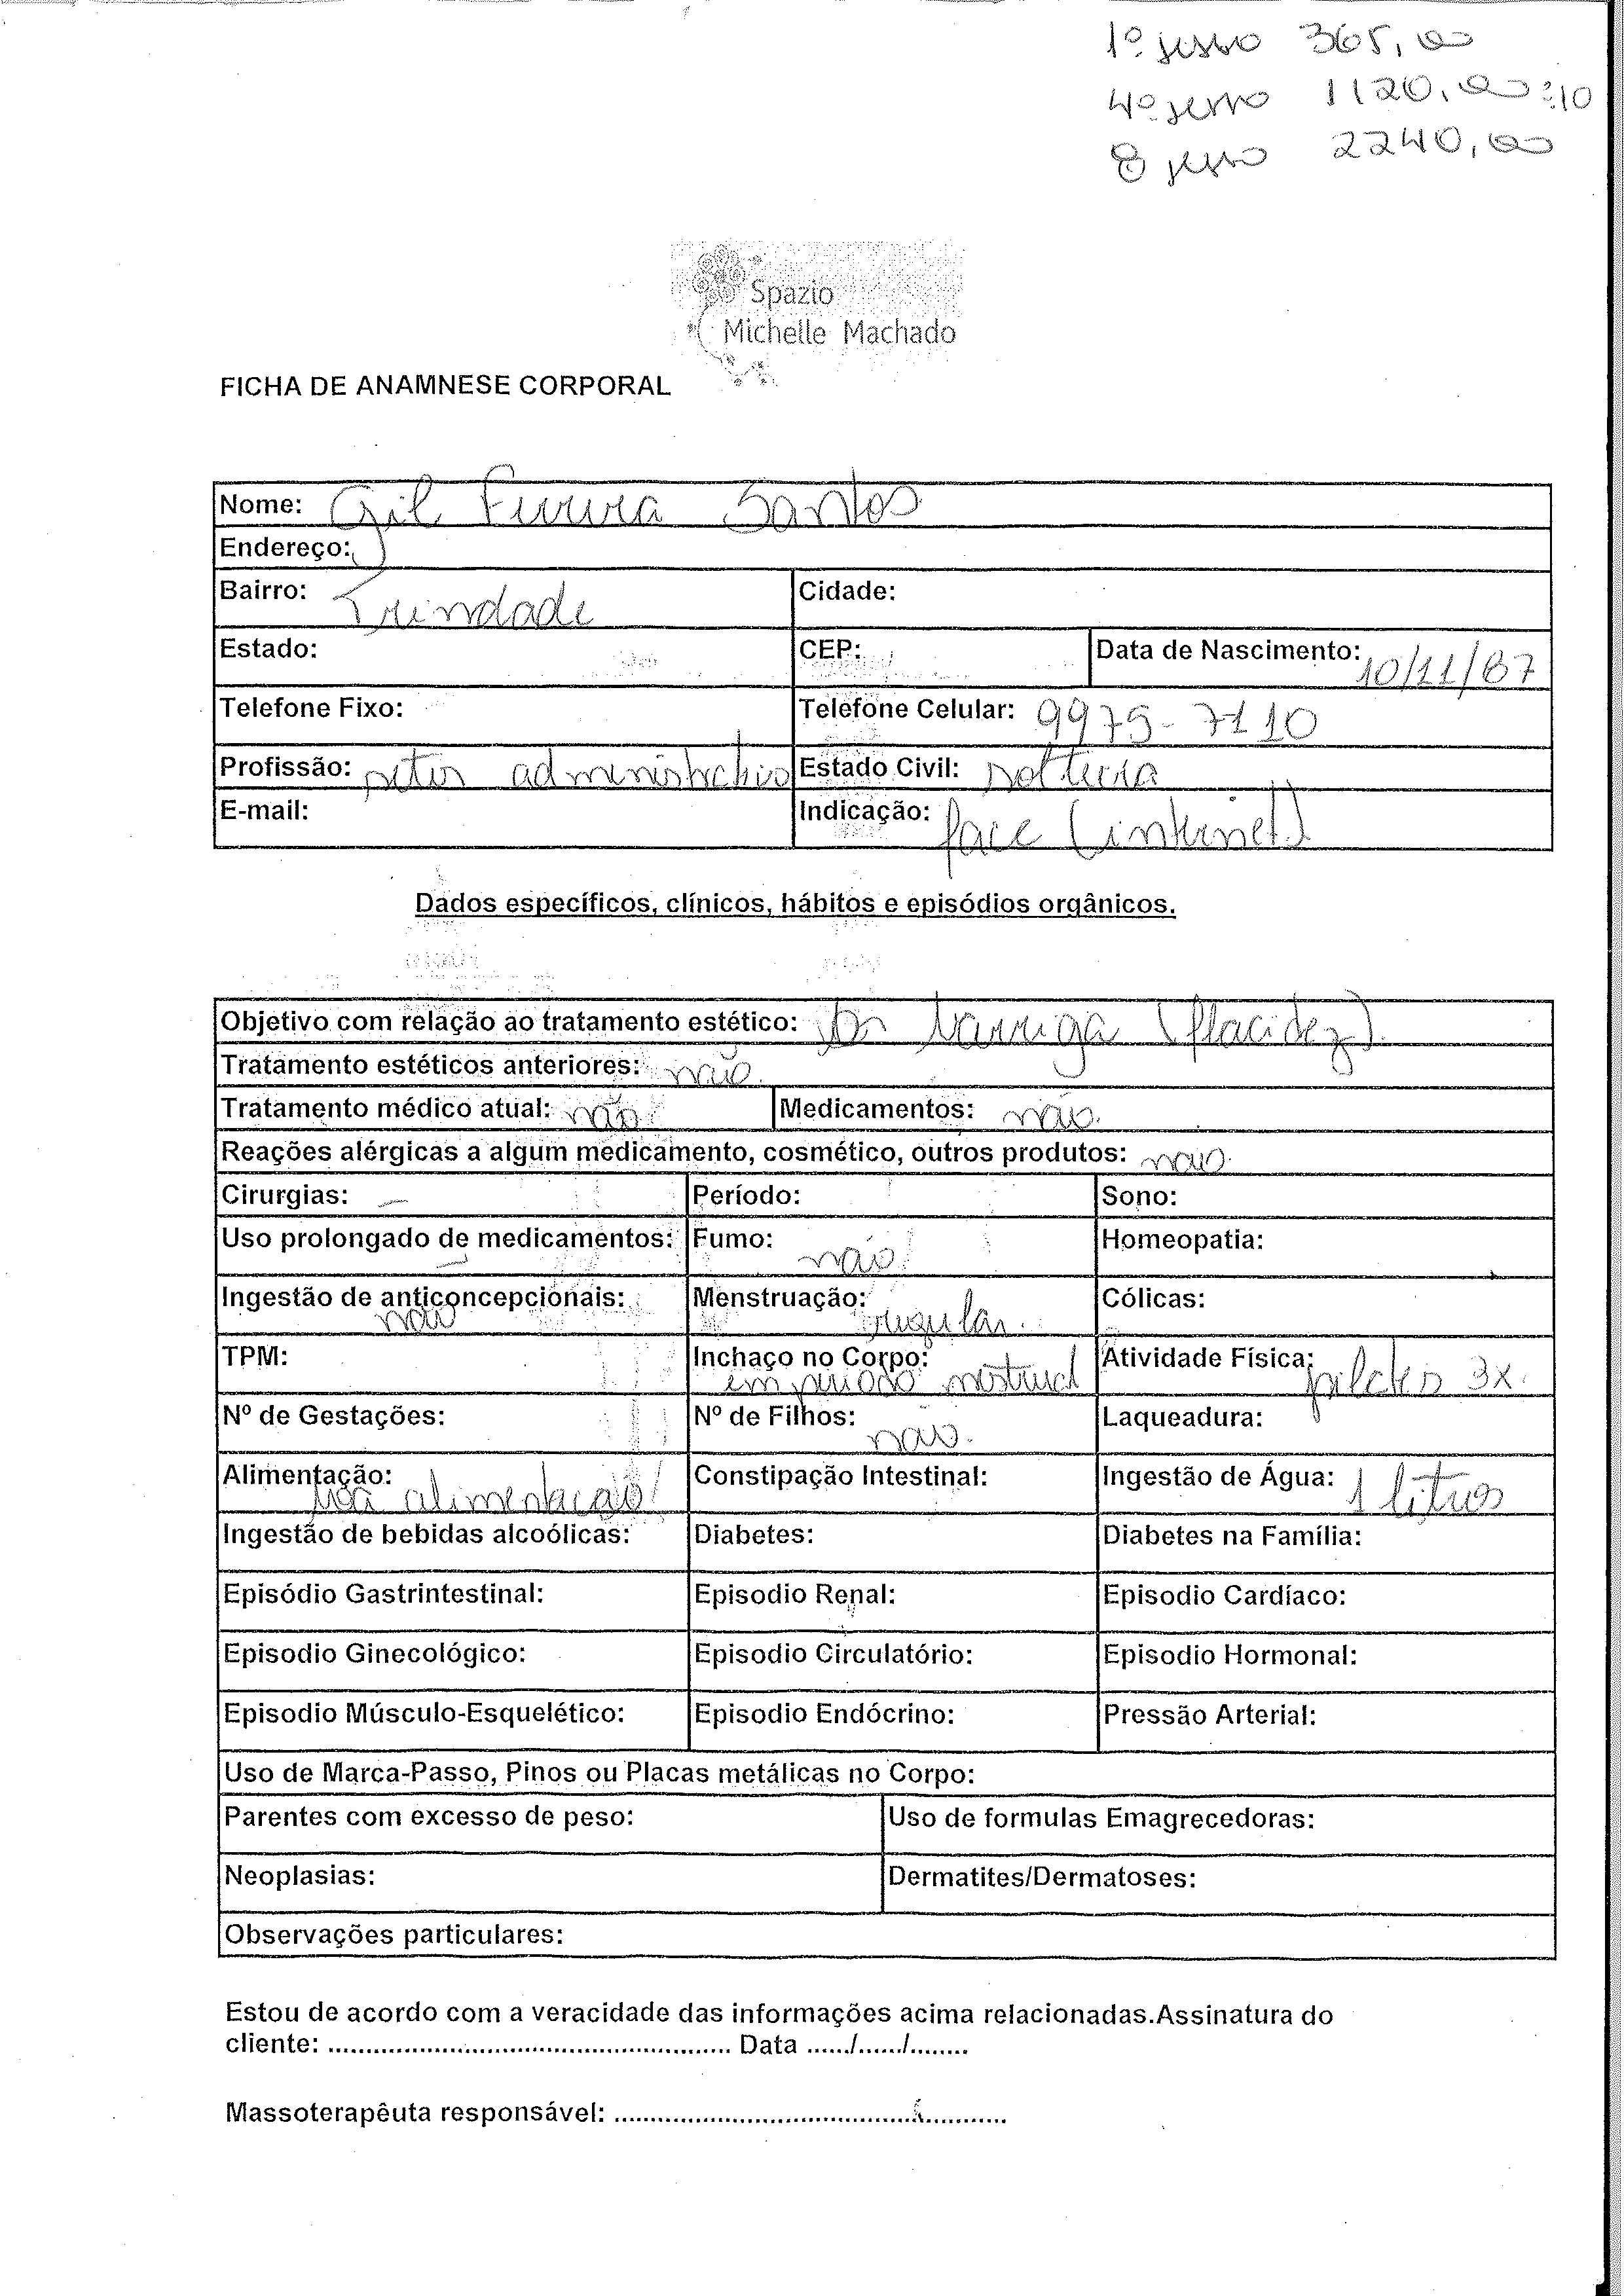 1º sessão 365,00
4º sessão 1120,00 :10
8 sessão 2240,00
Spazio
Michelle Machado
FICHA DE ANAMNESE CORPORAL
Nome: Gil Ferreira Santos
Endereço:
Bairro: Trindade Cidade:
Estado: CEP: Data de Nascimento: 10/11/87
Telefone Fixo: Telefone Celular: 9975-7110
Profissão: setor administrativo Estado Civil: solteira
E-mail: Indicação: face (internet)
Dados específicos, clínicos, hábitos e episódios orgânicos.
Objetivo com relação ao tratamento estético: barriga (flacidez).
Tratamento estéticos anteriores: não.
Tratamento médico atual: não. Medicamentos: não.
Reações alérgicas a algum medicamento, cosmético, outros produtos: não.
Cirurgias: — Período: Sono:
Uso prolongado de medicamentos: — Fumo: não Homeopatia:
Ingestão de anticoncepcionais: não Menstruação: regular. Cólicas:
TPM: Inchaço no Corpo: em periodo mestrual Atividade Física: pilates 3x.
Nº de Gestações: Nº de Filhos: não. Laqueadura:
Alimentação: boa alimentação Constipação Intestinal: Ingestão de Água: 1 litros
Ingestão de bebidas alcoólicas: Diabetes: Diabetes na Família:
Episódio Gastrintestinal: Episodio Renal: Episodio Cardíaco:
Episodio Ginecológico: Episodio Circulatório: Episodio Hormonal:
Episodio Músculo-Esquelético: Episodio Endócrino: Pressão Arterial:
Uso de Marca-Passo, Pinos ou Placas metálicas no Corpo:
Parentes com excesso de peso: Uso de formulas Emagrecedoras:
Neoplasias: Dermatites/Dermatoses:
Observações particulares:
Estou de acordo com a veracidade das informações acima relacionadas.Assinatura do
cliente: ...................................................... Data ....../....../........
Massoterapêuta responsável: .....................................................